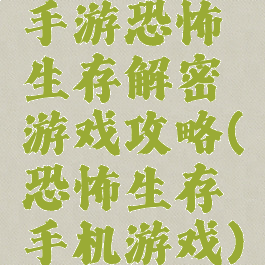 手游恐怖
生存解密
游戏攻略(
恐怖生存
手机游戏)